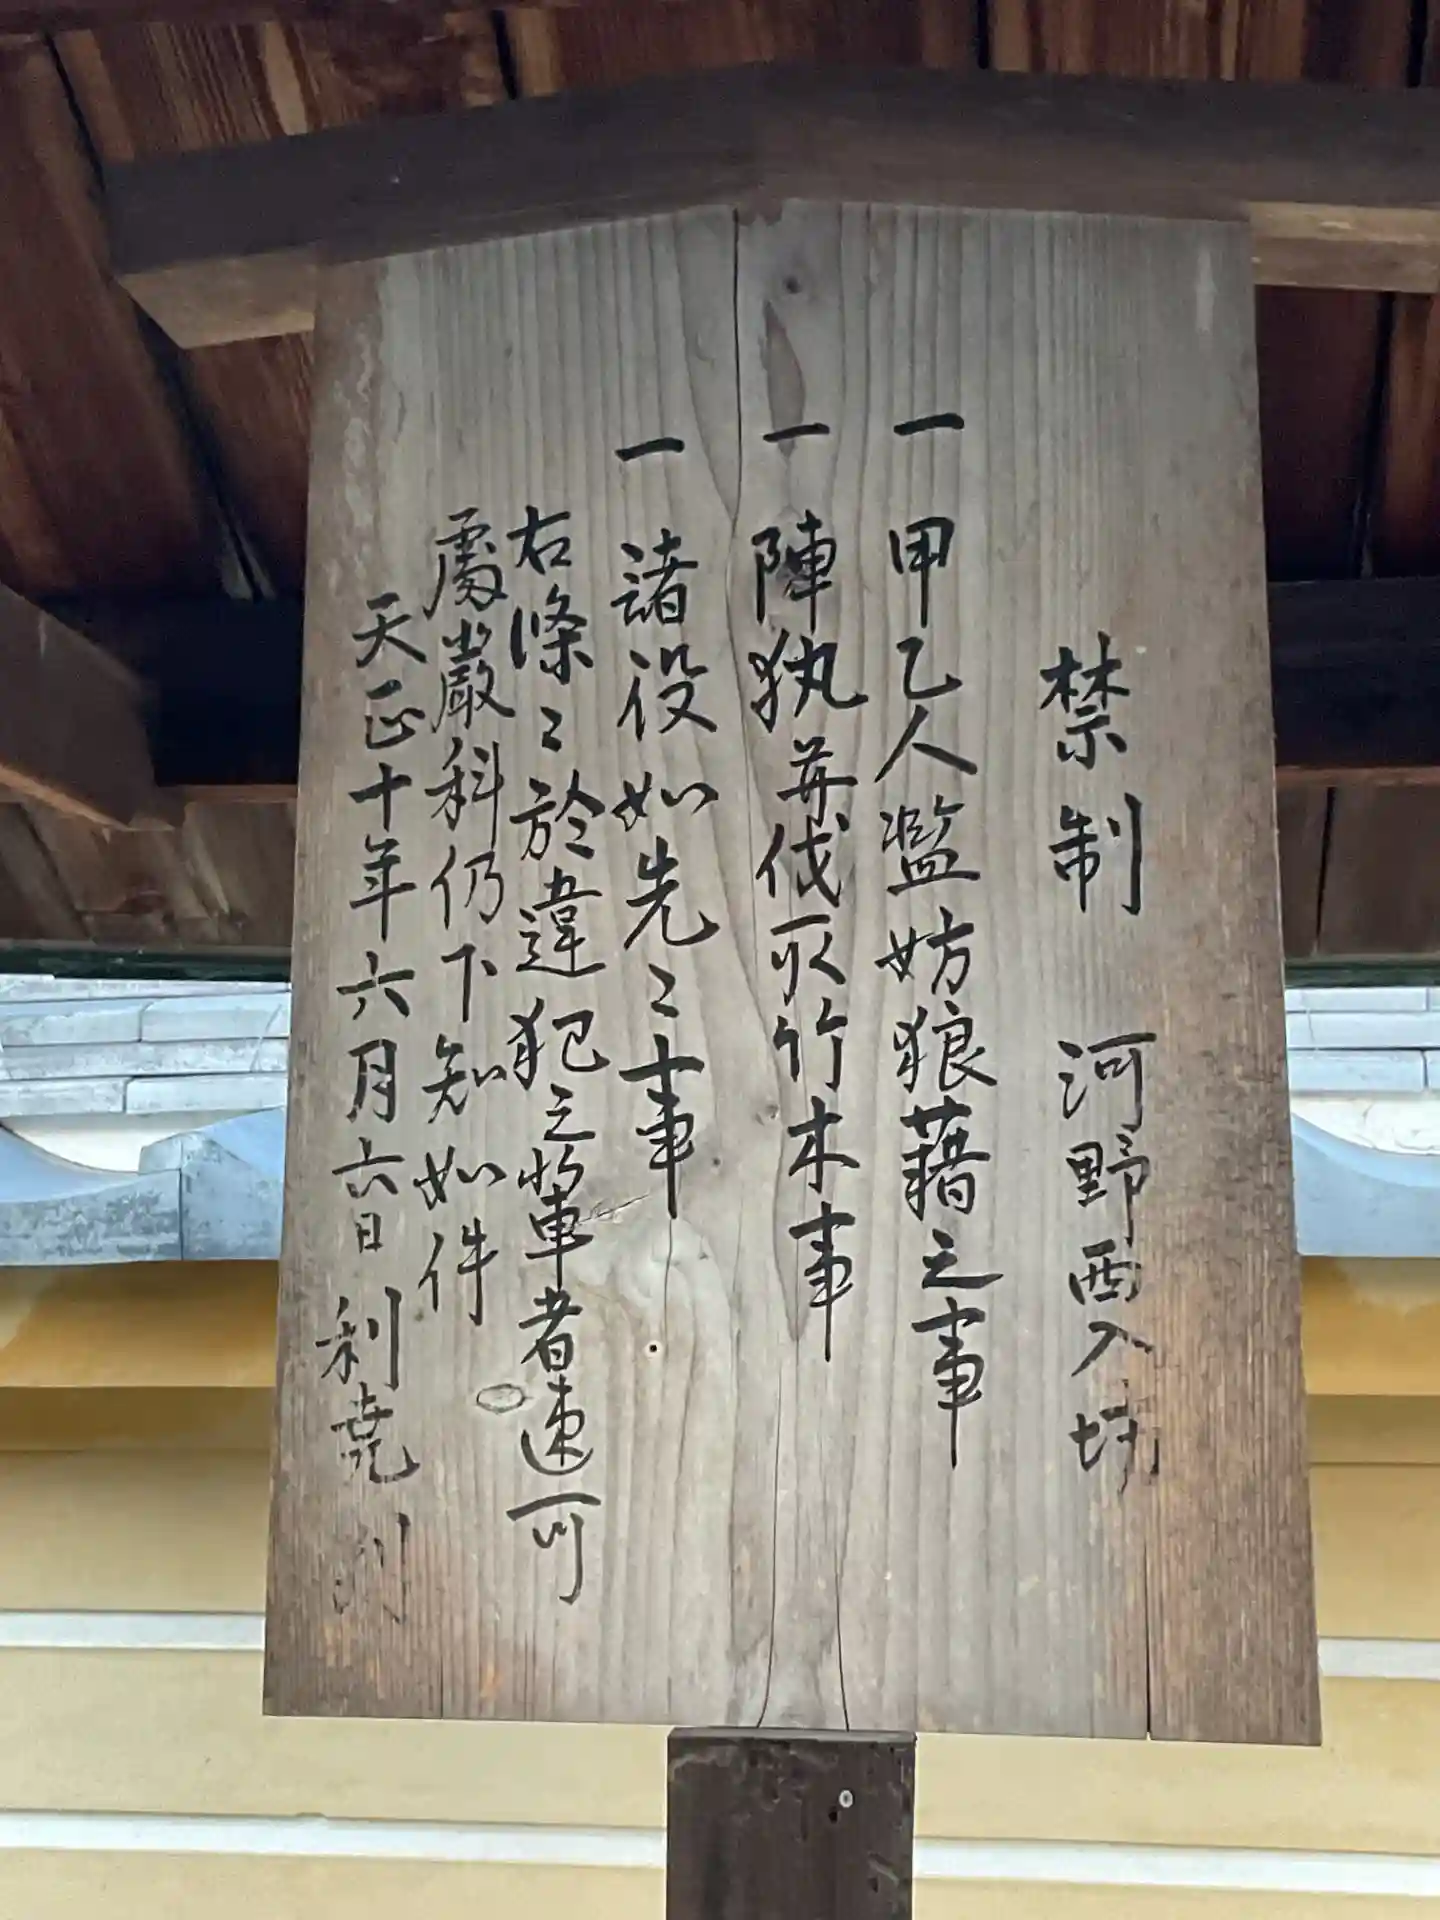 禁制　河野西入坊
一　甲乙人濫妨狼藉之事
一　陣執并伐取竹木事
一　諸役如先〻事
右條〻於違犯之輩者速可
處嚴科仍下知如件
天正十年六月六日　利堯